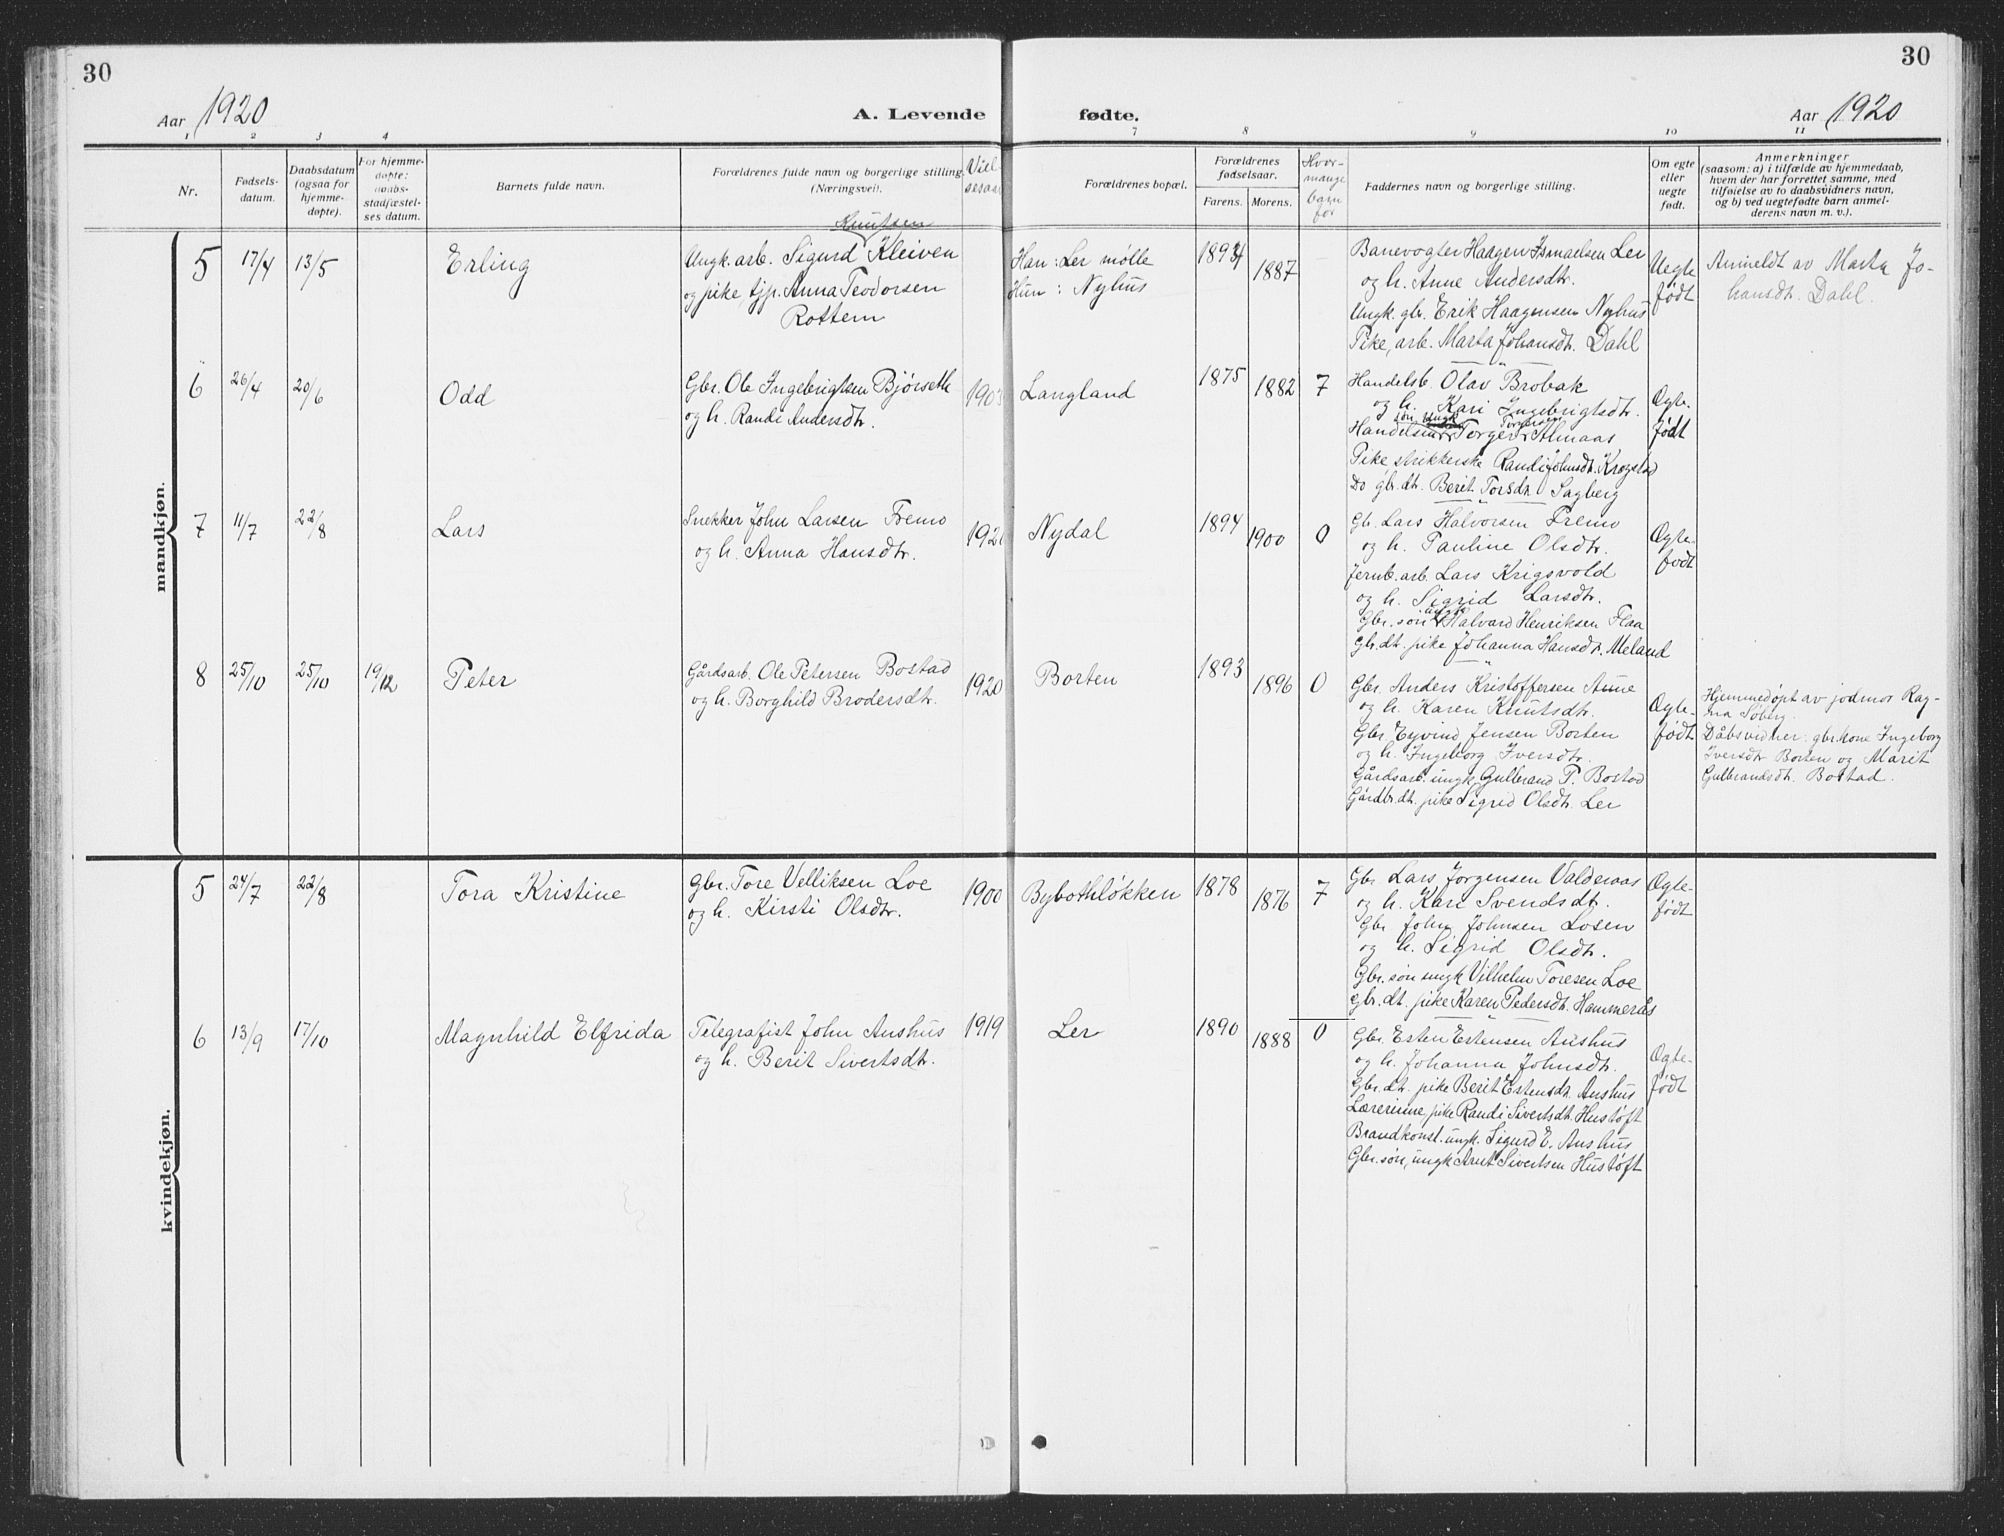 30
30
Aar 1920
A. Levende fødte.
Aar 1920
1 2 3 4 7 8 9 10 11
Nr.
Fødsels-
datum.
Daabsdatum
(ogsaa for
hjemme-
døpte).
For hjemme-
døpte:
daabs-
stadfæstel-
ses datum.
Barnets fulde navn.
Forældrenes fulde navn og borgerlige stilling
(Næringsvei).
Viel-
sesaar
Forældrenes bopæl.
Forældrenes
fødselsaar.
Farens. Morens.
Hvor-
mange
barn
før
Faddernes navn og borgerlige stilling.
Om egte
eller
uegte
født.
Anmerkninger
(saasom: a) i tilfælde av hjemmedaab,
hvem der har forrettet samme, med
tilføielse av to daabsvidners navn,
og b) ved uegtefødte barn anmel-
derens navn m. v.).
mandkjøn.
5 17/4 13/5 Erling
Knutsen
Ungk. arb. Sigurd Kleiven
og pike, tjp. Anna Teodorsen
Rottem
Han: Ler mølle
Hun: Nyhus
1894 1887
Banevogter Haagen Ismaelsen Ler
og h. Anne Andersdtr.
Ungk. gbr. Erik Haagensen Nyhus
Pike, arb. Marta Johansdtr. Dahl
Uegte
født
Anmeldt av Marta Jo-
hansdtr. Dahl.
6 26/4 20/6 Odd
Gbr. Ole Ingebrigtsen Bjørseth
og h. Randi Andersdtr.
1903 Langland 1875 1882 7
Handelsb. Olav Brobak
og h. Kari Ingebrigtsdtr.
søn ungk Torgersen
Handelsm. Torger Almaas
Pike strikkerske Randi Johnsdt. Krogstad
Do gbr. dt. Berit Torsdtr. Sagberg
Ægte-
født
7 11/7 22/8 Lars
Snekker John Larsen Fremo
og h. Anna Hansdtr.
1920 Nydal 1894 1900 0
Gb. Lars Halvorsen Fremo
og h. Pauline Olsdtr.
Jernb. arb. Lars Krigsvold
og h. Sigrid Larsdtr.
ungk.
Gbr. søn Halvard Henriksen Flaa
Gbr. dt. pike Johanna Hansdt. Meland
Ægte-
født
8 25/10 25/10 19/12 Peter
Gårdsarb. Ole Petersen Bostad
og h. Borghild Brodersdtr.
1920 Borten 1893 1896 0
Gbr. Anders Kristoffersen Aune
og h. Karen Knutsdtr.
Gbr. Eyvind Jensen Borten
og h. Ingeborg Iversdtr.
Gårdsarb. ungk. Gulbrand P. Bostad
Gårdbr. dt. pike Sigrid Olsdt. Ler
Ægte-
født
Hjemmedøpt av jodmor Rag-
na Søberg.
Dåbsvidner: gbr. kone Ingeborg
Iversdtr Borten og Marit
Gulbrandsdt. Bostad.
kvindekjøn.
5 24/7 22/8 Tora Kristine
Gbr. Tore Velliksen Loe
og h. Kirsti Olsdtr.
1900 Bybothløkken 1878 1876 7
Gbr Lars Jørgensen Valderaas
og h. Kari Svendsdt.
Gbr John Johnsen Losen
og h. Sigrid Olsdtr.
Gbr. søn ungk Vilhelm Toresen Loe
Gbr. dt. pike Karen Pedersdt. Hammerås
Ægte-
født
6 13/9 17/10 Magnhild Elfrida
Telegrafist John Aushus
og h. Berit Sivertsdtr.
1919 Ler 1890 1888 0
Gbr. Esten Estensen Aushus
og h. Johanna Johnsdtr.
Gbr. dt. pike Berit Estensdtr. Aushus
Lærerinne, pike Randi Sivertsdt. Hustøft
Brandkonst. ungk. Sigurd E. Aushus
Gbr. søn, ungk Arnt Sivertsen Hustøft
Ægte-
født